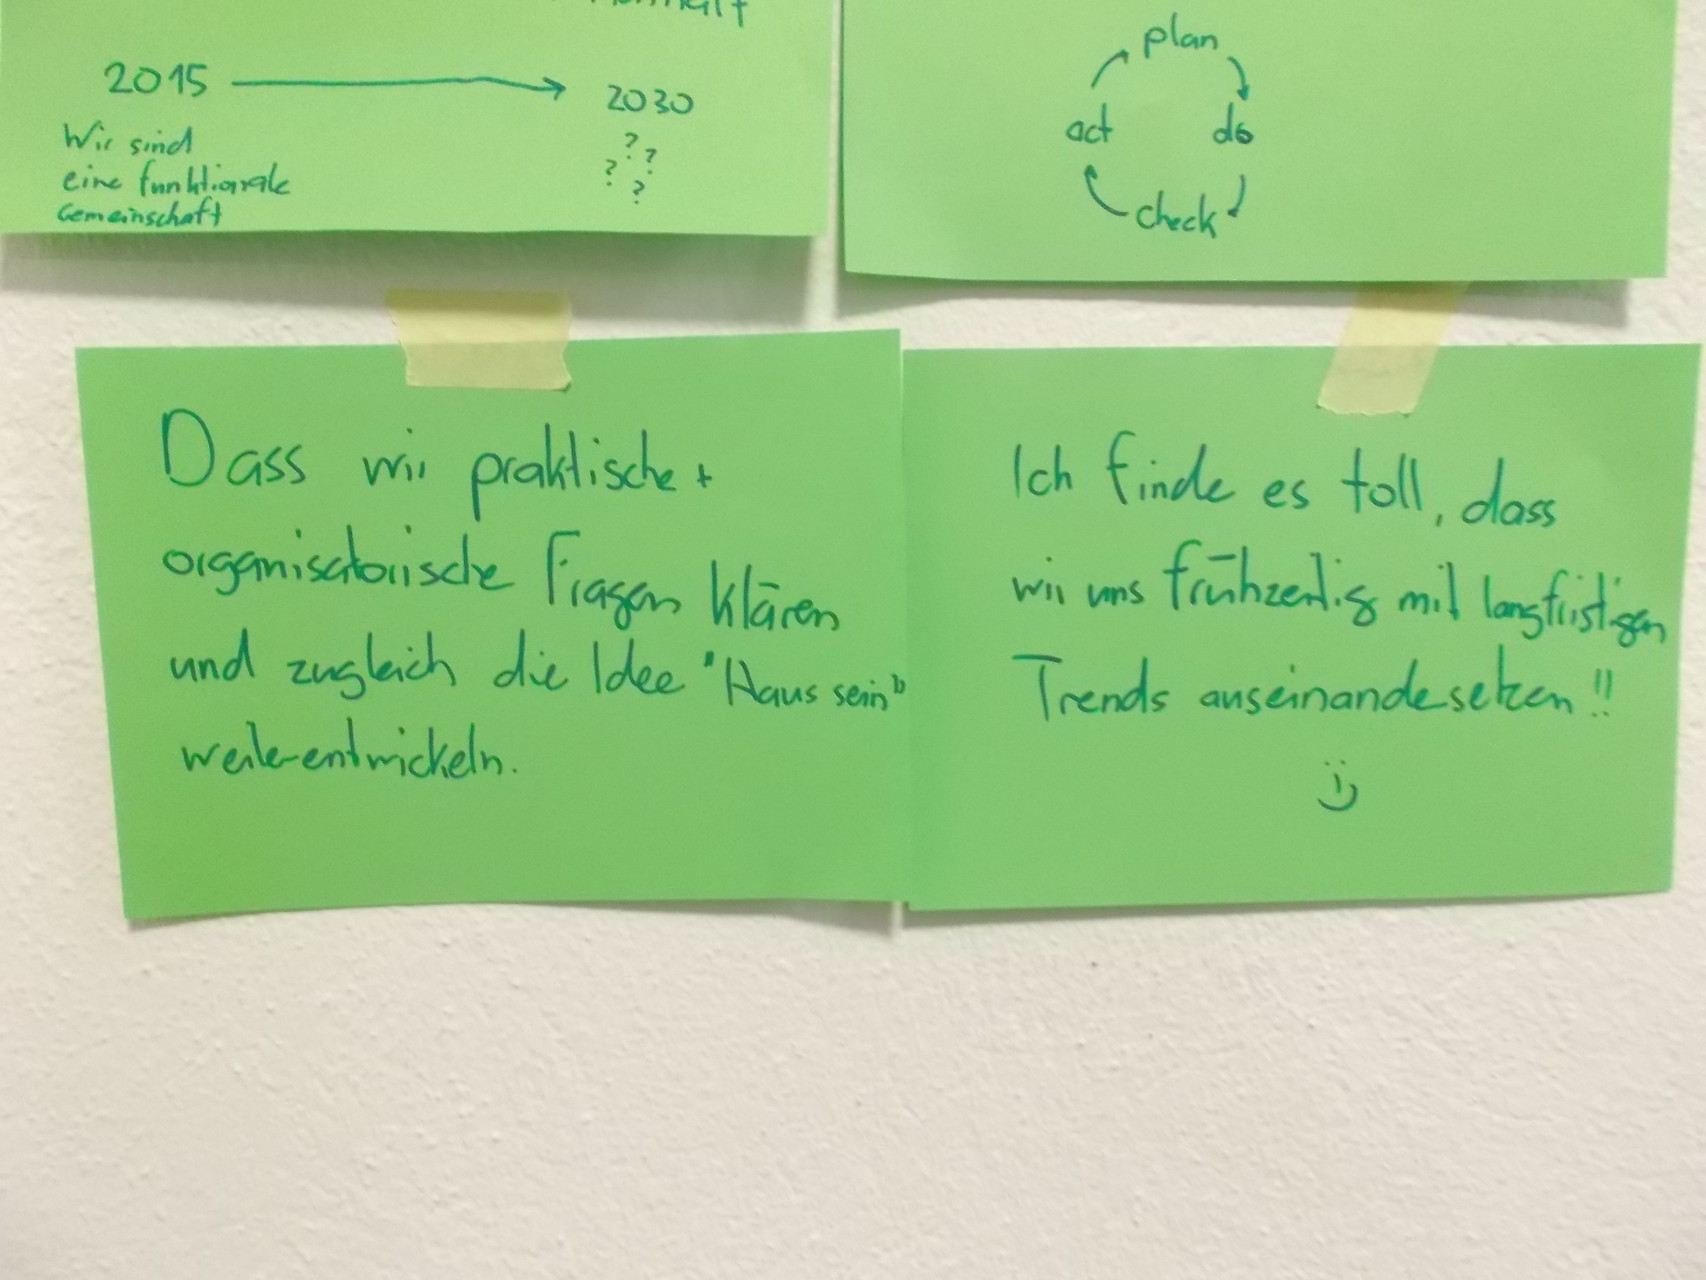 2015 → 2030
Wir sind
eine funktionale
Gemeinschaft
? ?
? ?
plan
act do
check
Dass wir praktische +
organisatorische Fragen klären
und zugleich die Idee "Haus sein"
weiterentwickeln.
Ich finde es toll, dass
wir uns frühzeitig mit langfristigen
Trends auseinandesetzen!!